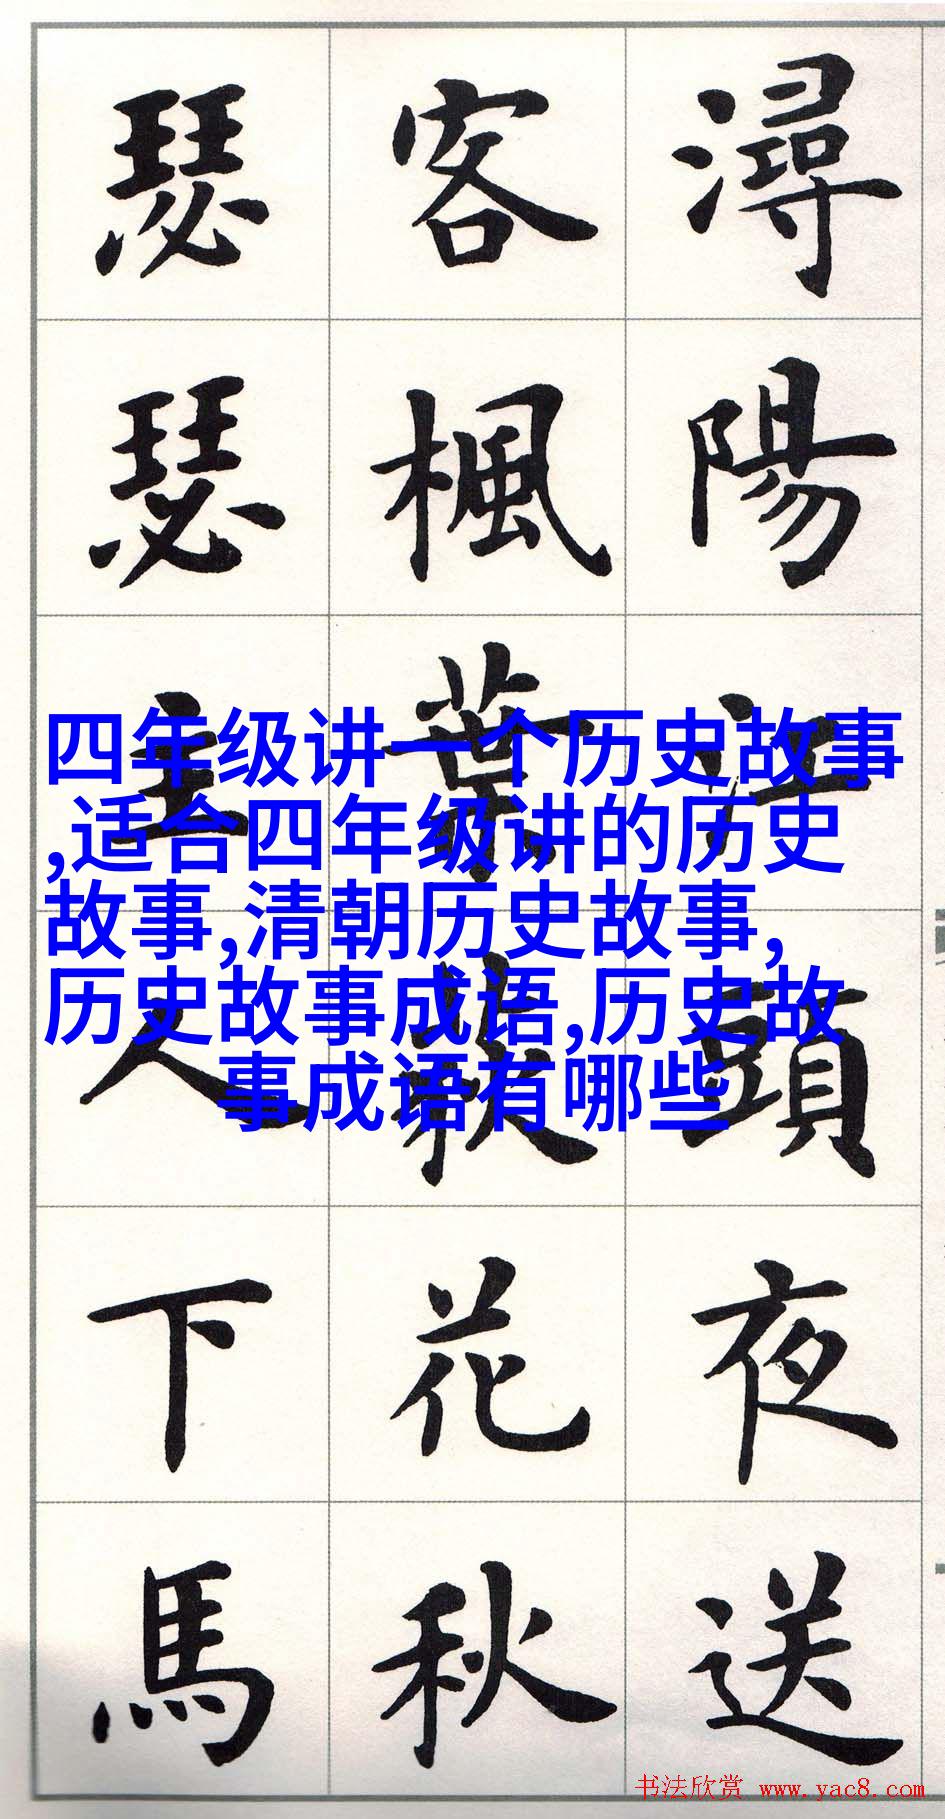 潯陽江頭夜送
客楓葉荻花秋
瑟瑟主人下馬
四年级讲一个历史故事
,适合四年级讲的历史
故事,清朝历史故事,
历史故事成语,历史故
事成语有哪些
书法欣赏 www.yac8.com